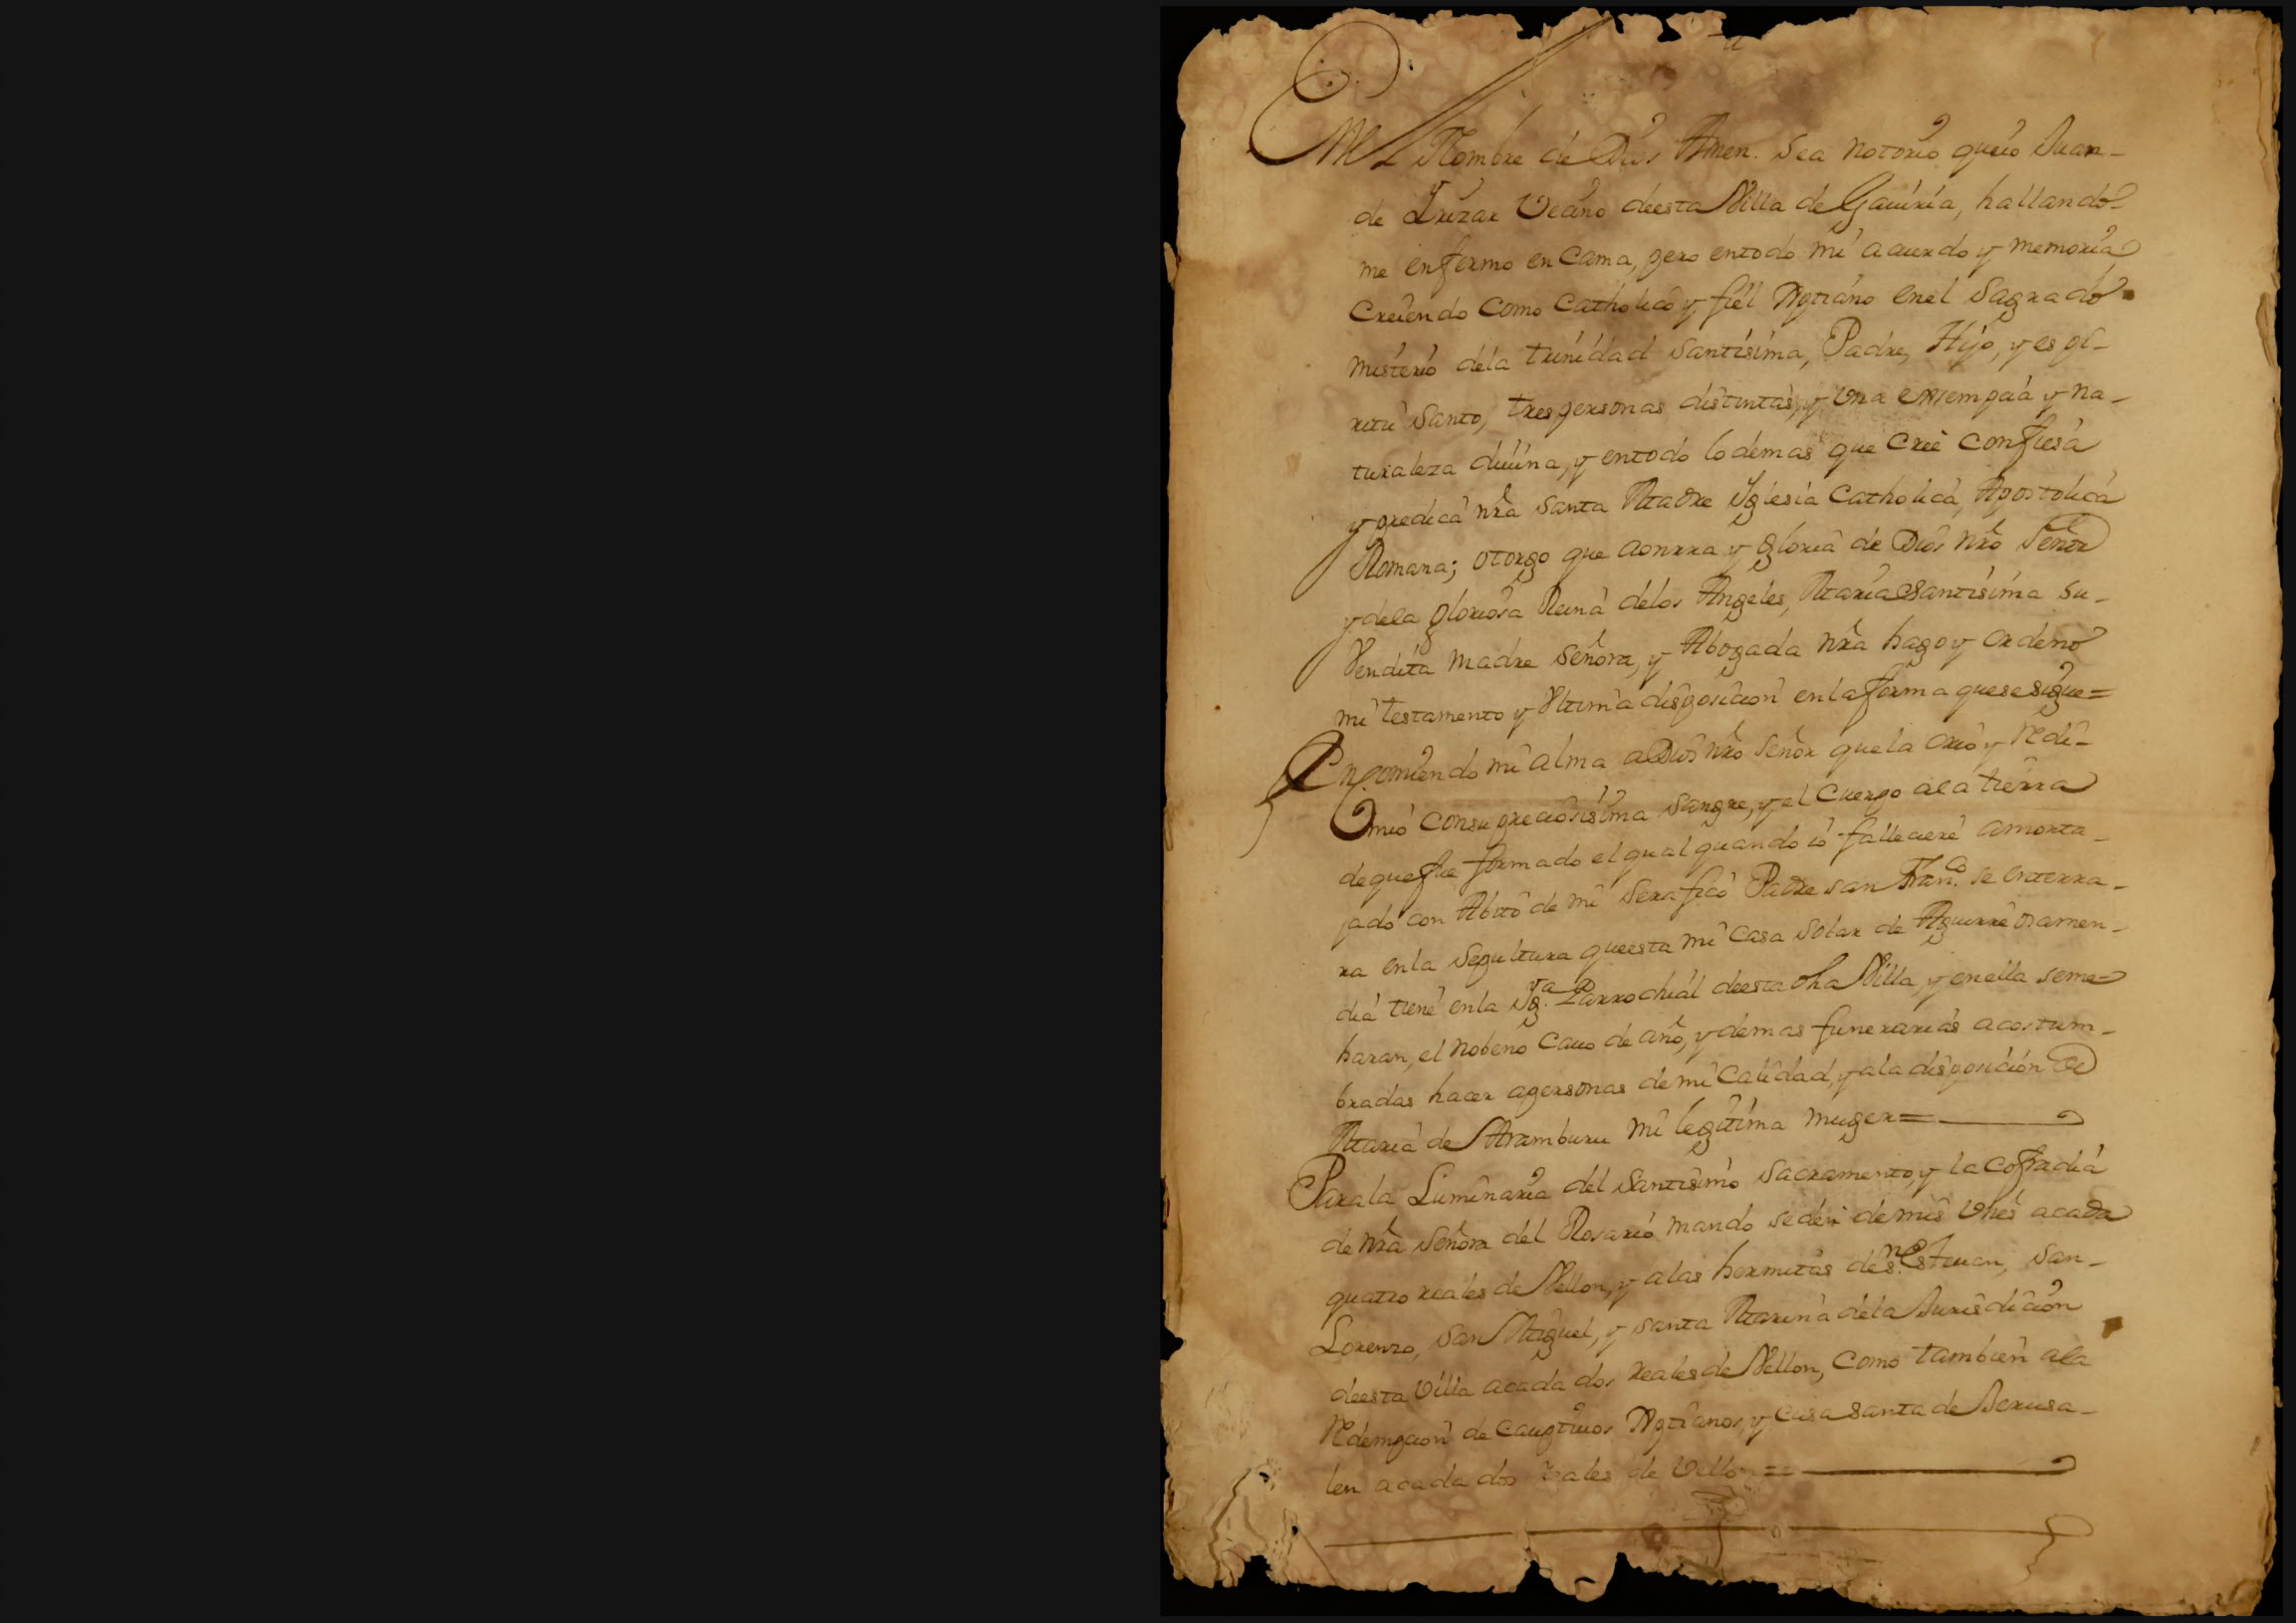 En el Nombre de Dios Amen. Sea notorio que io Juan-
de Irizar Vecino deesta Villa de Gauiria, hallando-
me enfermo en Cama, pero entodo mi acuerdo y memoria
Creiendo Como Catholico y fiel Xptiano enel Sagrado
misterio dela trinidad Santisima, Padre, Hijo, y espi-
ritu Santo, tres personas distintas, y Vna essempcia y na-
turaleza diuina, y entodo lo demas que Cree Confiesa
y predica nra Santa Madre Iglesia Catholica, Apostolica
Romana; otorgo que aonrra y gloria de Dios nro Señor
y dela gloriosa Reina delos Angeles, Maria Santisima su-
Vendita madre Señora, y Abogada nra hago y ordeno
mi testamento y Vltima disposicion en la forma que se sigue=
Encomiendo mi alma a Dios nro Señor que la crio y redi-
mio con su preciosisima Sangre, y el Cuerpo ala tierra
de que fue formado el qual quando io falleciere amorta-
jado con Abito de mi Serafico Padre san Franco. se enterra-
ra enla Sepultura que esta mi Casa Solar de Aguirre osamen-
dia tiene enla Iga. Parrochial deesta dha Villa, y en ella seme-
haran, el nobeno Cauo de año, y demas funerarias acostum-
bradas hacer apersonas de mi Calidad, y ala disposicion de
Maria de Aramburu mi legitima muger=
Para la Luminaria del Santisimo Sacramento, y la Cofradia
de nra Señora del Rosario mando se den de mis Vnes acada
quatro reales de Vellon, y alas hermitas de sn. Esteuan, San-
Lorenzo, San Miguel, y santa Marina dela Jurisdicion
deesta Villa acada dos reales de Vellon, Como tambien ala
redempcion de Captiuos Xptianos, y Casa Santa de Jerusa-
len acada dos reales de Vellon=